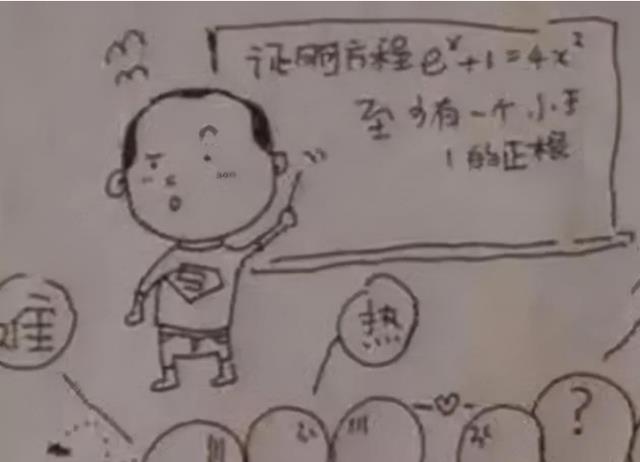 证明方程e^x+1=4x^2
至少有一个小于
1的正根
热
?